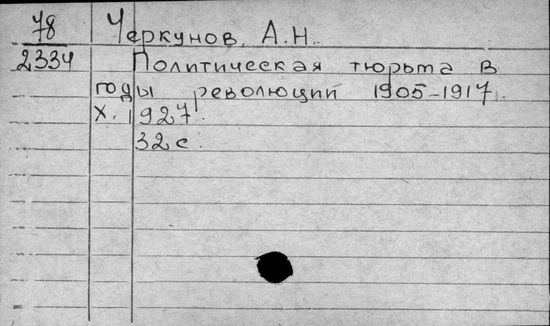 78 Черкунов, А.Н.
2334 Политическая тюрьма в
годы революций 1905-1917.
Х. 1927.
32 с.